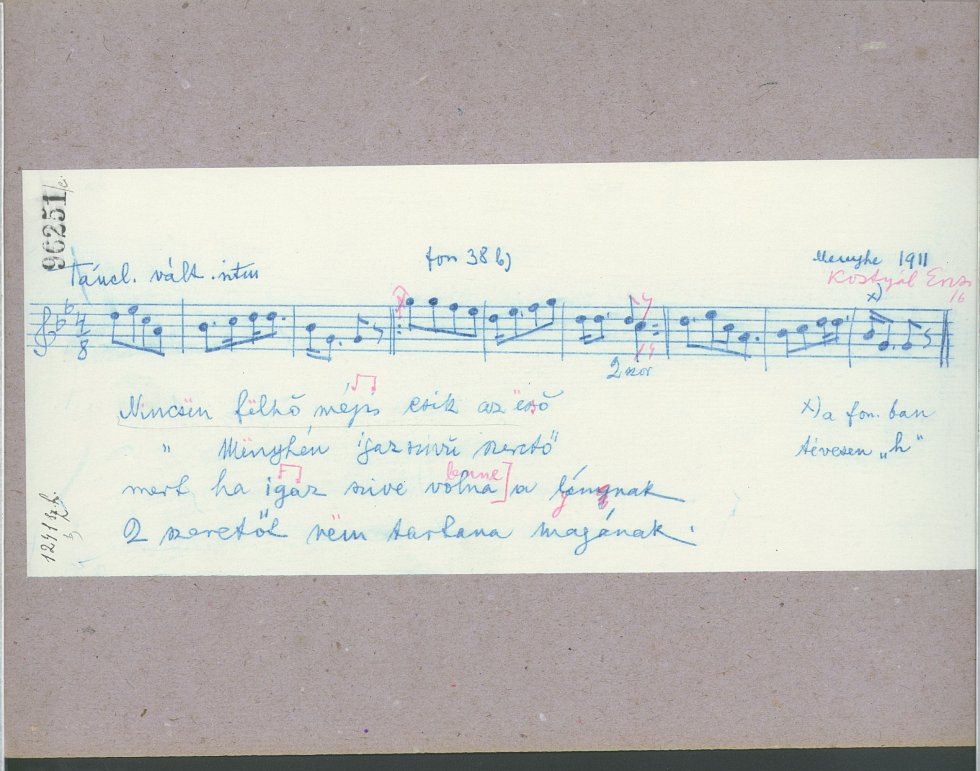 96251/c.
Táncl. vált. ritm
fon 38 b)
Menyhe 1911
Kostyál Erzs
16
x)
4
8
2 szor
Nincsën fëlhő mégis esik az ëső
" Mënyhén igazszivű szerető
mert ha igaz szive vólna benne] a lénynak
2 szeretőt nëm tartana magának.
x) a fon. ban
tévesen „h"